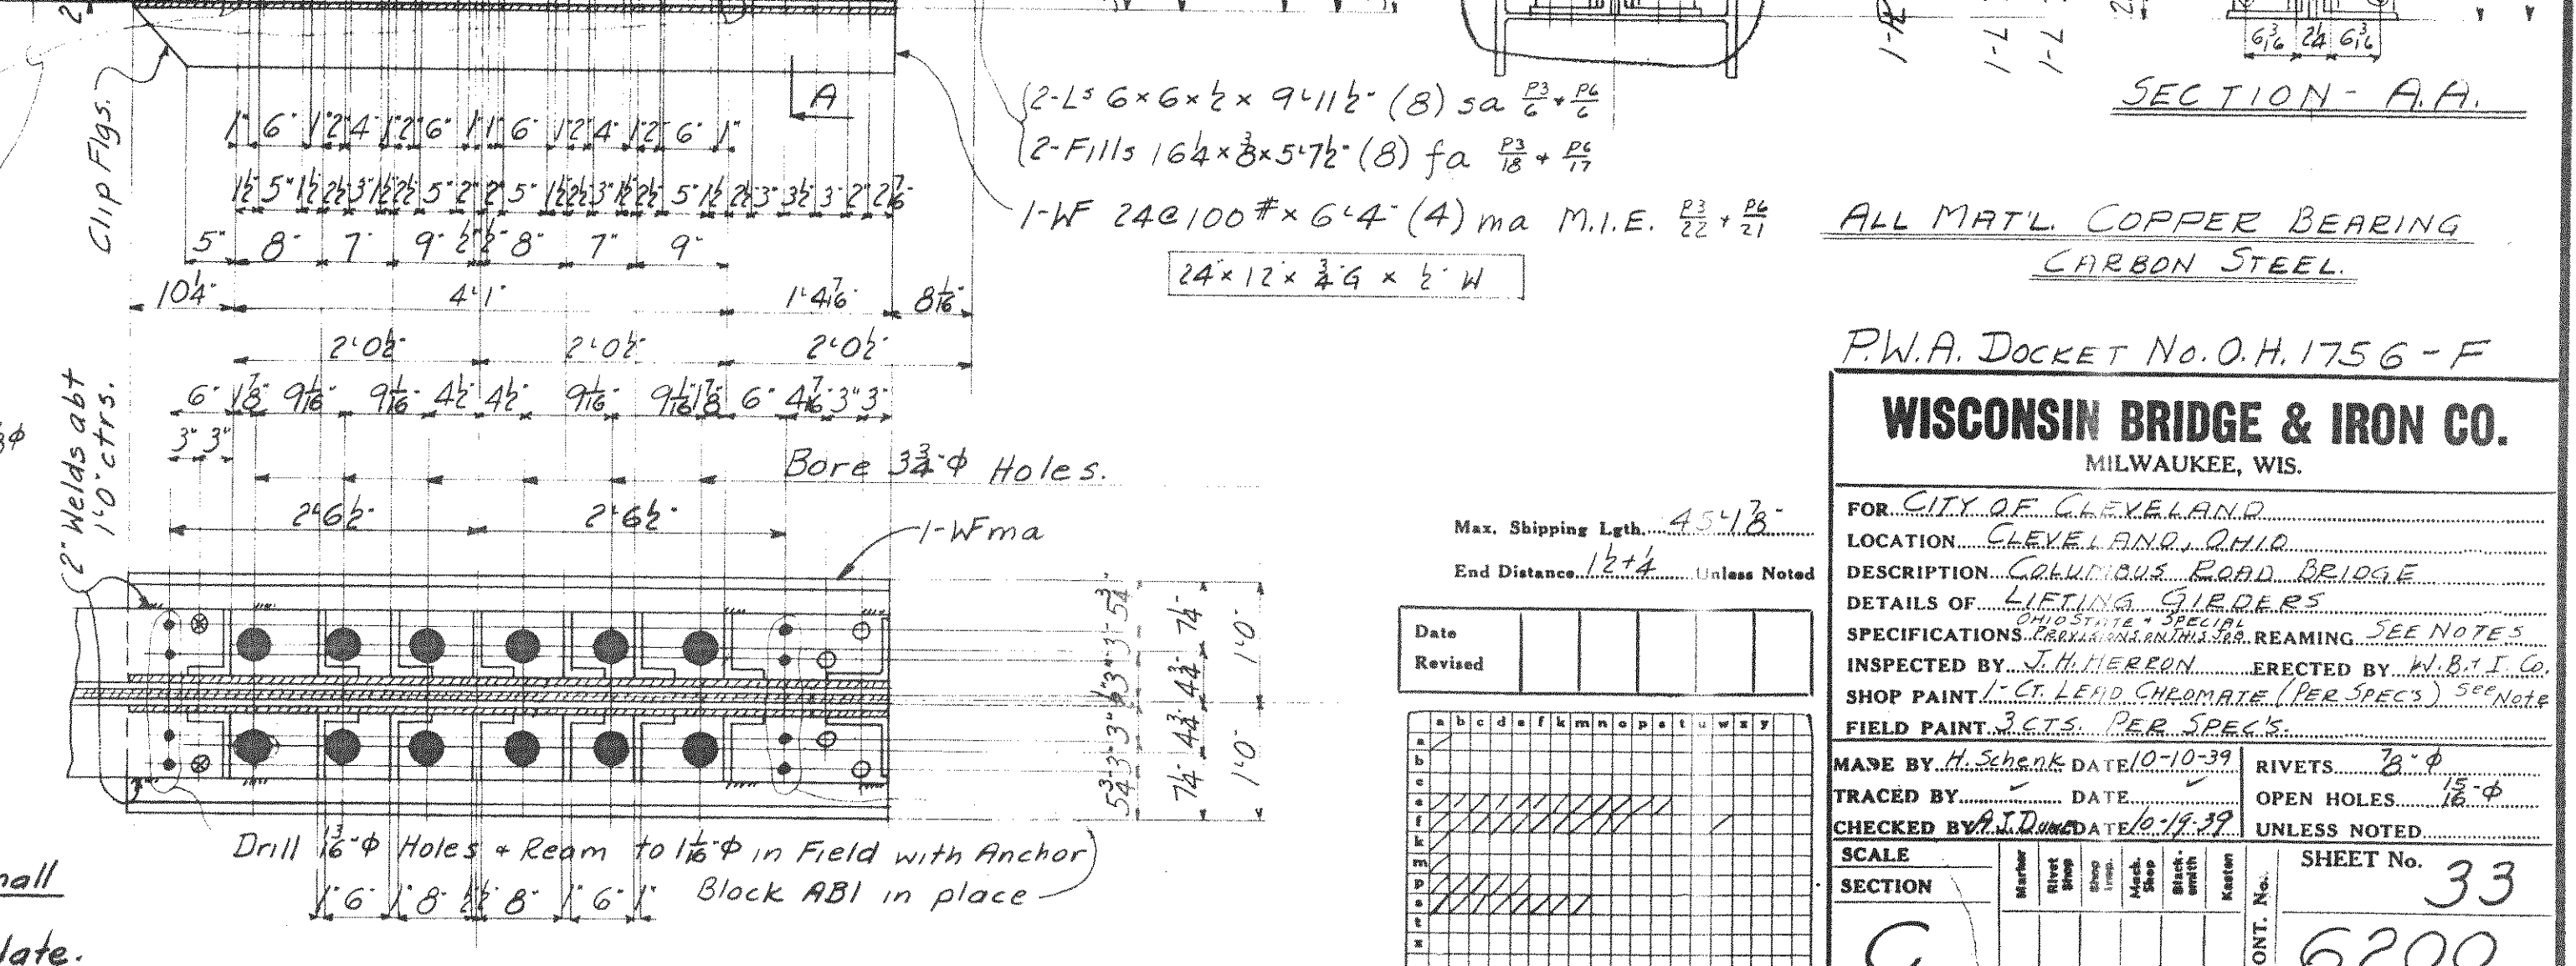 Clip Flgs.
A
1" 6" 1" 2" 4" 1" 2" 6" 1" 1" 6" 1" 2" 4" 1" 2" 6" 1"
1½" 5" 1½" 2½" 3" 1½" 2½" 5" 2" 2" 5" 1½" 2½" 3" 1½" 2½" 5" 1½" 2½" 3" 3½" 3" 2" 2 7/16"
5" 8" 7" 9" ½" ½" 8" 7" 9"
10¼" 4'1" 1'4 7/16" 8 1/16"
2'0½" 2'0½" 2'0½"
6" 1⅞" 9 1/16" 9 1/16" 4½" 4½" 9 1/16" 9 1/16" 1⅞" 6" 4 7/16" 3" 3"
3" 3"
Bore 3¾"φ Holes.
2'6½" 2'6½"
1-WF ma
2" Welds abt
1'0" ctrs.
5¾" 3" 3" 3" 3" 5¾"
7¼" 4¾" 4¾" 7¼"
1'0" 1'0"
Drill 1 3/16"φ Holes + Ream to 1 1/16"φ in Field with Anchor
Block AB1 in place
1" 6" 1" 8" ½" ½" 8" 1" 6" 1"
late.
2-Ls 6×6×½ × 9'11½" (8) sa P3/6 + P6/6
2-Fills 16¼×⅜×5'7½" (8) fa P3/18 + P6/17
1-WF 24@100# × 6'4" (4) ma M.I.E. P3/22 + P6/21
24"×12"×¾"G × ½" W
6 3/16 2¼ 6 3/16
SECTION - A.A.
ALL MAT'L. COPPER BEARING
CARBON STEEL.
P.W.A. DOCKET No. O.H. 1756-F
WISCONSIN BRIDGE & IRON CO.
MILWAUKEE, WIS.
FOR CITY OF CLEVELAND
LOCATION CLEVELAND, OHIO
DESCRIPTION COLUMBUS ROAD BRIDGE
DETAILS OF LIFTING GIRDERS
SPECIFICATIONS OHIO STATE + SPECIAL PROVISIONS ON THIS JOB REAMING SEE NOTES
INSPECTED BY J.H. HERRON ERECTED BY W.B. + I. Co.
SHOP PAINT 1-CT. LEAD CHROMATE (PER SPEC'S) SEE NOTE
FIELD PAINT 3 CTS. PER SPEC'S.
MADE BY H. Schenk DATE 10-10-39 RIVETS ⅞"φ
TRACED BY DATE OPEN HOLES 15/16"φ
CHECKED BY DATE 10-19-39 UNLESS NOTED
SCALE
SECTION
Marker Rivet Shop Shop Insp. Mach. Shop Black-smith
SHEET No. 33
CONT. No. 6200
C
Max. Shipping Lgth. 45'1⅞"
End Distance 1½+¼ Unless Noted
Date
Revised
a b c d e f k m n o p s t u w x y
a
b
c
e
f
k
m
p
s
t
x